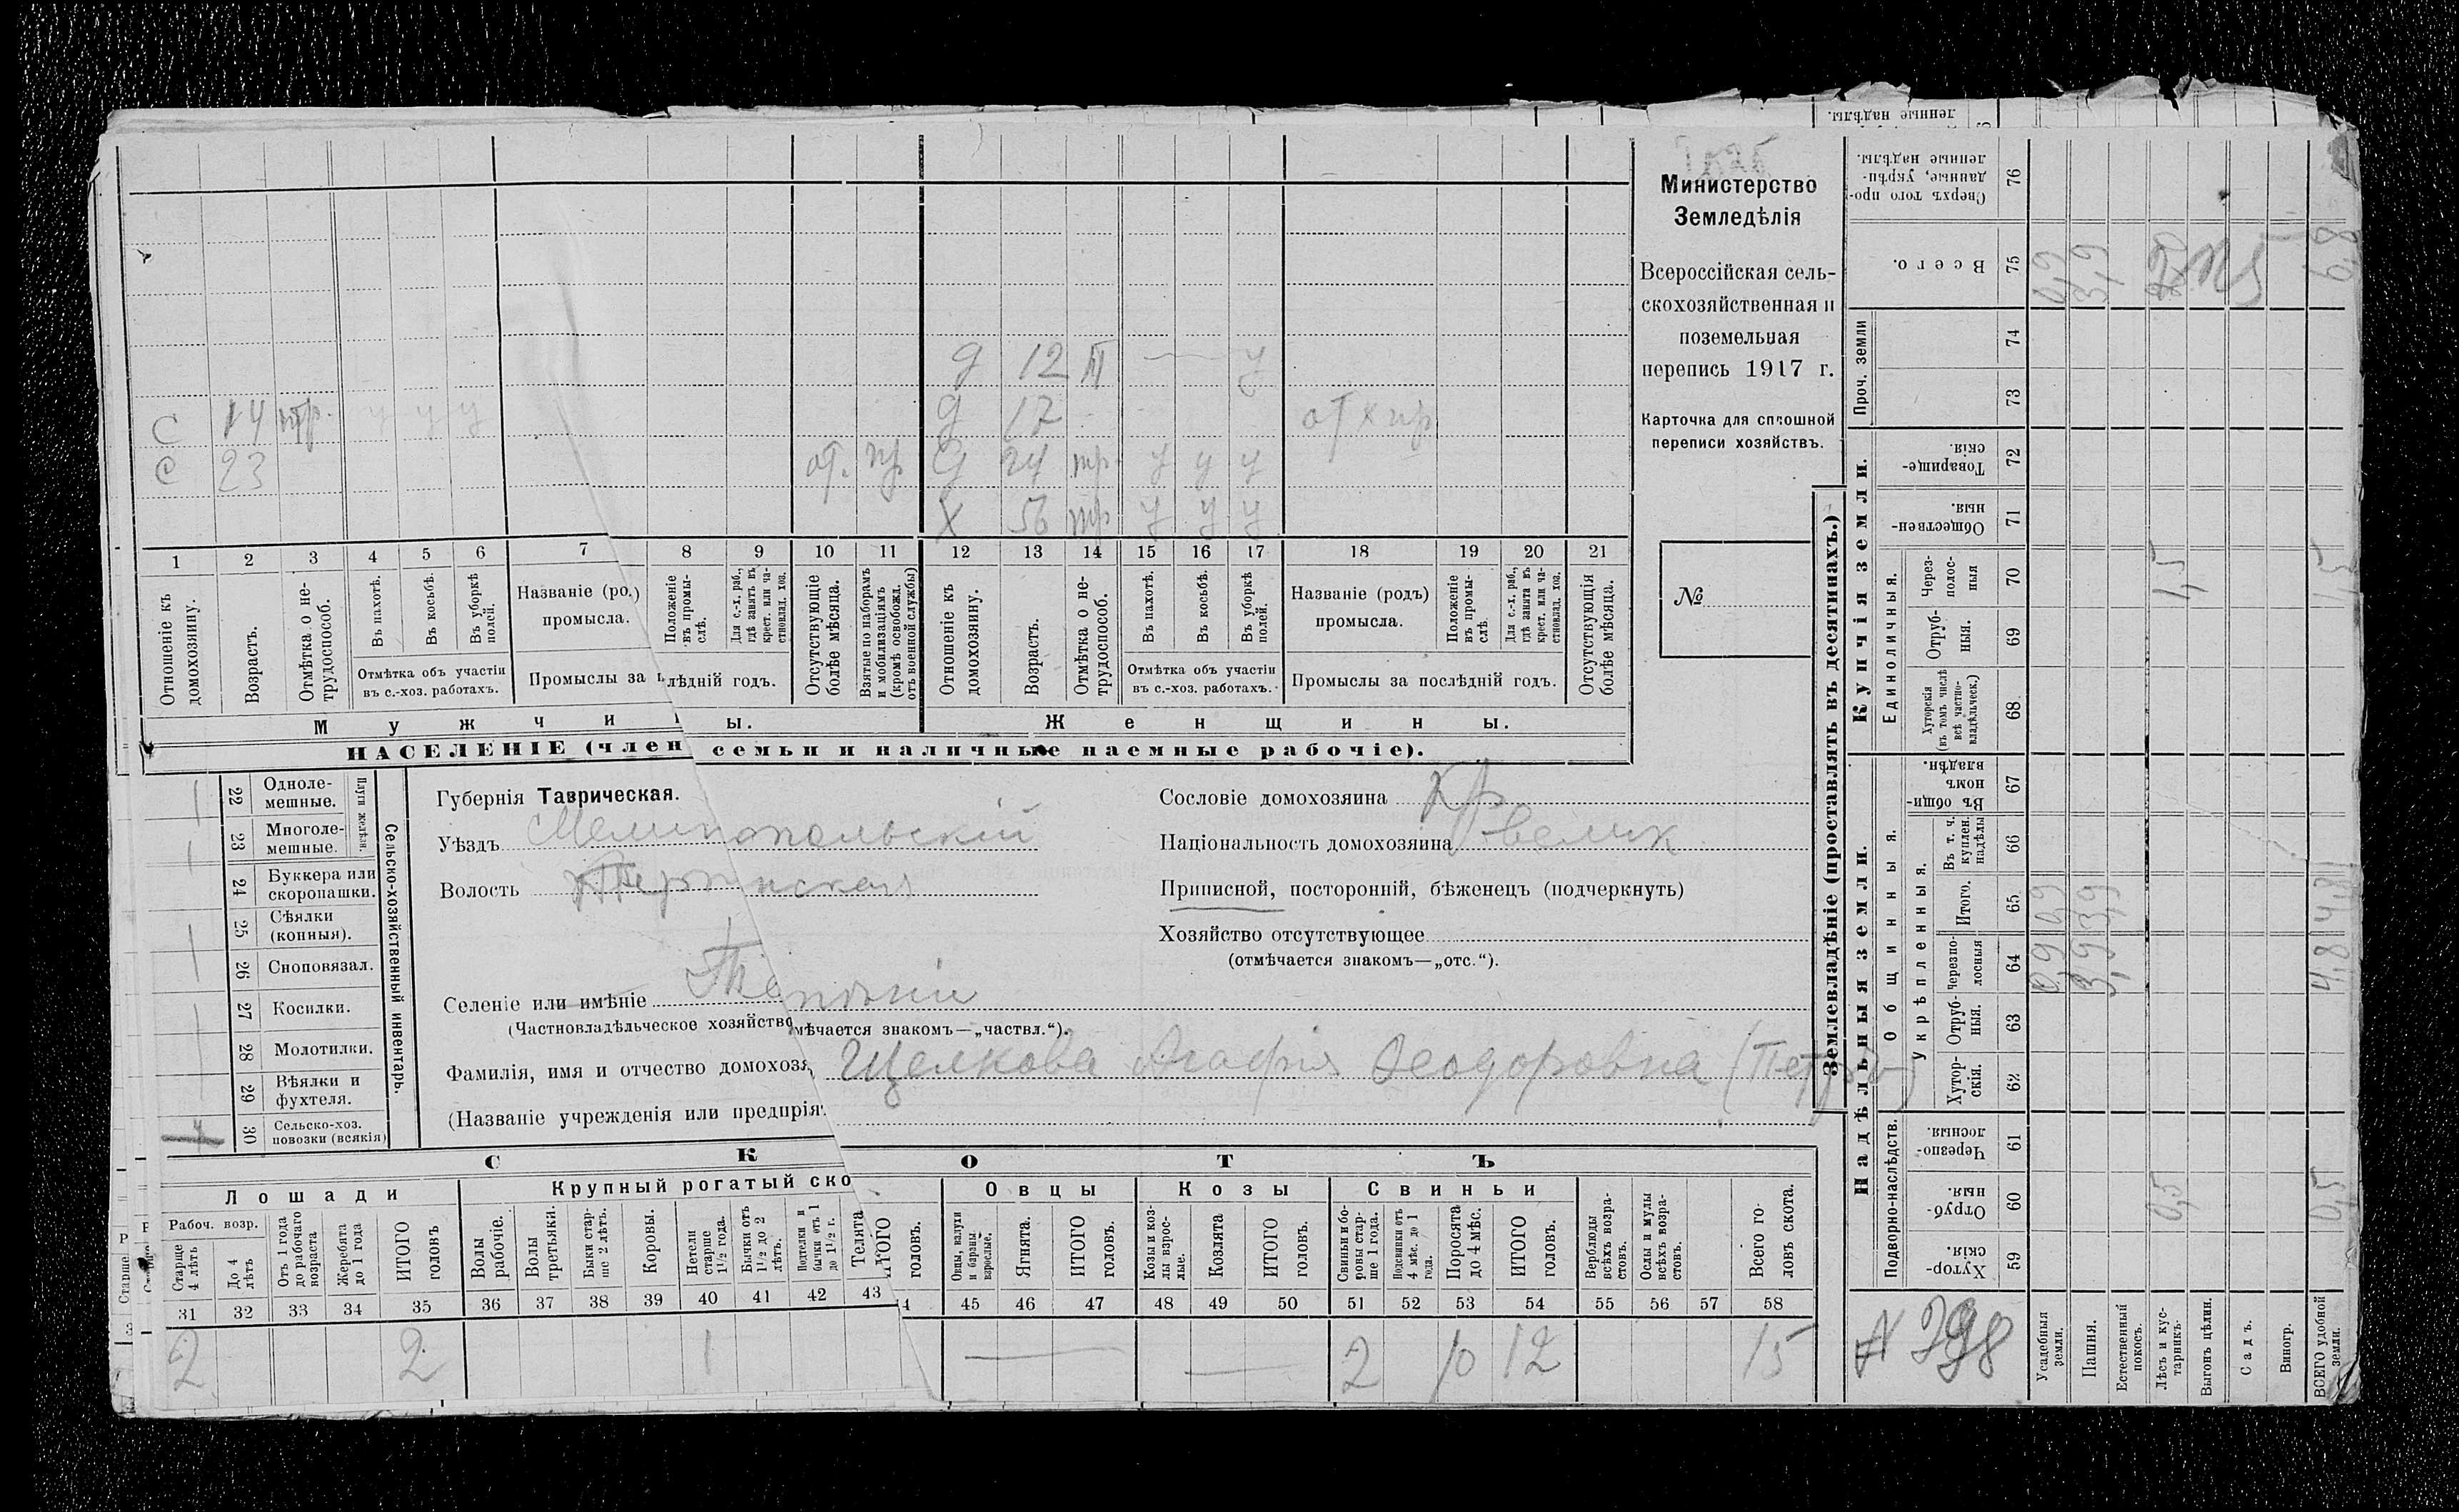 Министерство
Земледѣлія
Всероссійская сель-
скохозяйственная и
поземельная
перепись 1917 г.
Карточка для сплошной
переписи хозяйствъ.
№
д 12 — у
С 14 у у у д 17
С 23 от. пр д 24 у у у
Х 56 у у у
1 2 3 4 5 6 7 8 9 10 11 12 13 14 15 16 17 18 19 20 21
Отношеніе къ домохозяину.
Возрастъ.
Отмѣтка о не-трудоспособ.
Въ пахотѣ.
Въ косьбѣ.
Въ уборкѣ полей.
Отмѣтка объ участіи
въ с.-хоз. работахъ.
Названіе (ро.)
промысла.
Положеніе въ промы-слѣ.
Для с.-х. раб., гдѣ занятъ въ крест. или ча-стновлад. хоз.
Промыслы за лѣдній годъ.
Отсутствующіе болѣе мѣсяца.
Взятые по наборамъ и мобилизаціямъ (кромѣ освобожд. отъ военной службы)
Отношеніе къ домохозяину.
Возрастъ.
Отмѣтка о не-трудоспособ.
Въ пахотѣ.
Въ косьбѣ.
Въ уборкѣ полей.
Отмѣтка объ участіи
въ с.-хоз. работахъ.
Названіе (родъ)
промысла.
Положеніе въ промы-слѣ.
Для с.-х. раб., гдѣ занята въ крест. или ча-стновлад. хоз.
Промыслы за послѣдній годъ.
Отсутствующія болѣе мѣсяца.
Мужчи ы.
Женщины.
НАСЕЛЕНІЕ (член семьи и наличные наемные рабочіе).
22 Одноле-мешные.
23 Многоле-мешные.
Плуги желѣзн.
24 Буккера или скоропашки.
25 Сѣялки (конныя).
26 Сноповязал.
27 Косилки.
28 Молотилки.
29 Вѣялки и фухтеля.
30 Сельско-хоз. повозки (всякія)
Сельско-хозяйственный инвентарь.
Губернія Таврическая.
Уѣздъ Мелитопольскій
Волость
Селеніе или имѣніе
(Частновладѣльческое хозяйство мѣчается знакомъ—„частвл.“).
Фамилія, имя и отчество домохозя Щелкова Агафія Феодоровна
(Названіе учрежденія или предпрія
Сословіе домохозяина кр
Національность домохозяина велик
Приписной, посторонній, бѣженецъ (подчеркнуть)
Хозяйство отсутствующее
(отмѣчается знакомъ—„отс.“).
СКОТЪ
Лошади
Крупный рогатый ско
Овцы
Козы
Свиньи
Рабоч. возр.
Старше 4 лѣтъ
До 4 лѣтъ
Отъ 1 года до рабочаго возраста
Жеребята до 1 года
ИТОГО головъ
Волы рабочіе.
Волы третьяки.
Быки стар-ше 2 лѣтъ.
Коровы.
Нетели старше 1½ года.
Бычки отъ 1½ до 2 лѣтъ.
Подтелки и бычки отъ 1 до 1½ г.
Телята
ИТОГО головъ.
Овцы, валухи и бараны взрослые.
Ягнята.
ИТОГО головъ.
Козы и коз-лы взрос-лые.
Козлята
ИТОГО головъ.
Свиньи и бо-ровы стар-ше 1 года.
Подсвинки отъ 4 мѣс. до 1 года.
Поросята до 4 мѣс.
ИТОГО головъ.
Верблюды всѣхъ возра-стовъ.
Ослы и мулы всѣхъ возра-стовъ.
Всего го-ловъ скота.
31 32 33 34 35 36 37 38 39 40 41 42 43 4 45 46 47 48 49 50 51 52 53 54 55 56 57 58
2 2 1 — — 2 10 12 15
Землевладѣніе (проставлять въ десятинахъ.)
Надѣльныя земли.
Купчія земли.
Проч. земли
Общинныя.
Укрѣпленныя.
Единоличныя.
Подворно-наслѣдств.
Сверхъ того про-данные, укрѣп-ленные надѣлы. 76
Всего. 75
74
73
Товарище-скія. 72
Обществен-ныя. 71
Через-полос-ныя 70
Отруб-ныя. 69
Хуторскія (въ томъ числѣ всѣ частно-владѣльческ.) 68
Въ общи-номъ владѣн. 67
Въ т. ч. куплен. надѣлы 66
Итого. 65
Черезпо-лосныя 64
Отруб-ныя. 63
Хутор-скія. 62
Черезпо-лосныя. 61
Отруб-ныя. 60
Хутор-скія. 59
Усадебныя земли. 0,9 0,9 0,9
Пашня. 3,9 3,9 3,9
Естественный покосъ.
Лѣсъ и кус-тарникъ. 0,5 1,5
Выгонъ цѣлин.
Садъ.
Виногр.
ВСЕГО удобной земли. 0,5 4,8 4,8 1,5 6,8